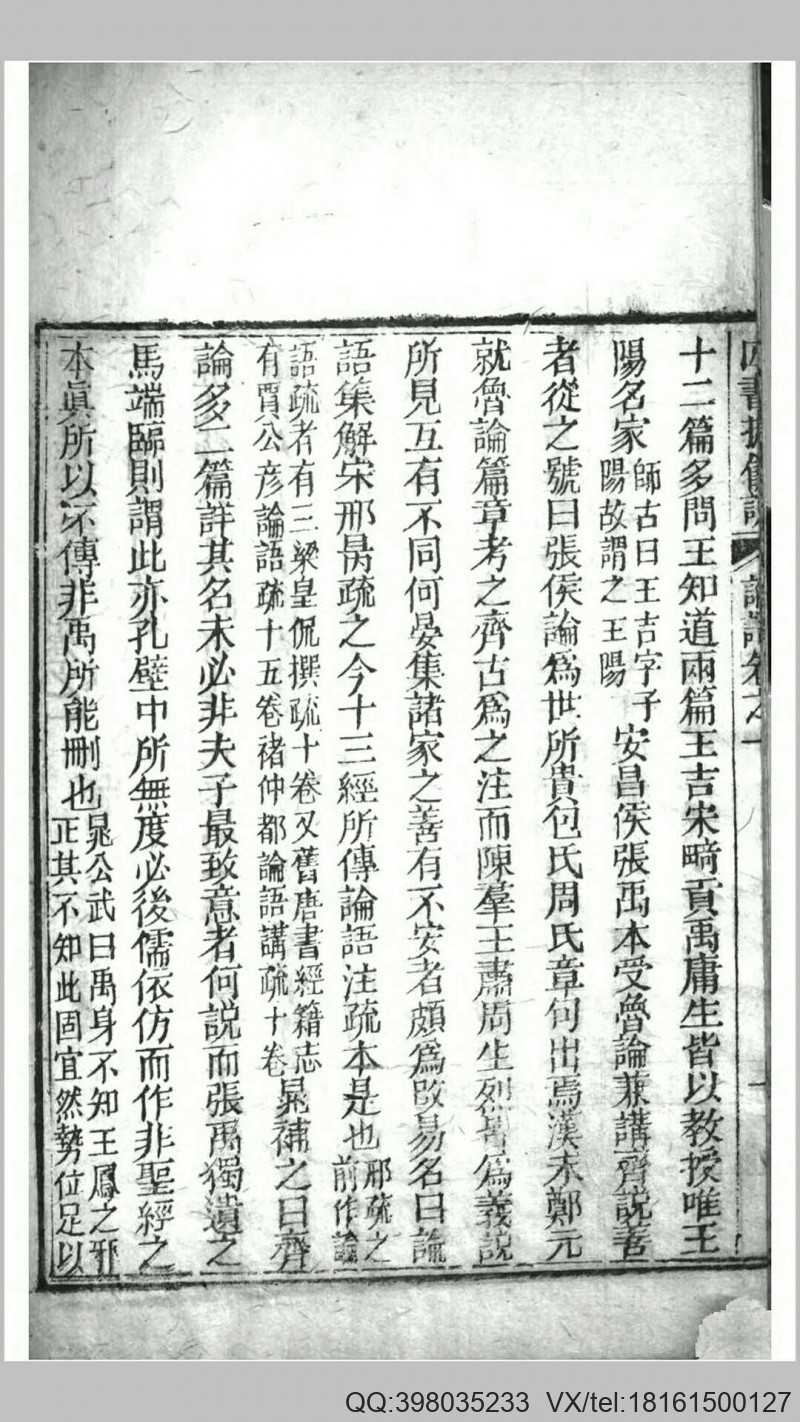 四書摭餘說 論語卷之一
十二篇多問王知道兩篇王吉宋畸貢禹庸生皆以教授唯王
陽名家師古曰王吉字子陽故謂之王陽安昌侯張禹本受魯論兼講齊說善
者從之號曰張侯論爲世所貴包氏周氏章句出焉漢末鄭元
就魯論篇章考之齊古爲之注而陳羣王肅周生烈皆爲義說
所見互有不同何晏集諸家之善有不安者頗爲改易名曰論
語集解宋邢昺疏之今十三經所傳論語注疏本是也邢疏之前作論
語疏者有三梁皇侃撰疏十卷又舊唐書經籍志有賈公彦論語疏十五卷禇仲都論語講疏十卷晁補之曰齊
論多二篇詳其名未必非夫子最致意者何說而張禹獨遺之
馬端臨則謂此亦孔壁中所無度必後儒依仿而作非聖經之
本眞所以不傳非禹所能刪也晁公武曰禹身不知王鳳之邪正其不知此固宜然勢位足以
QQ:398035233 VX/tel:18161500127